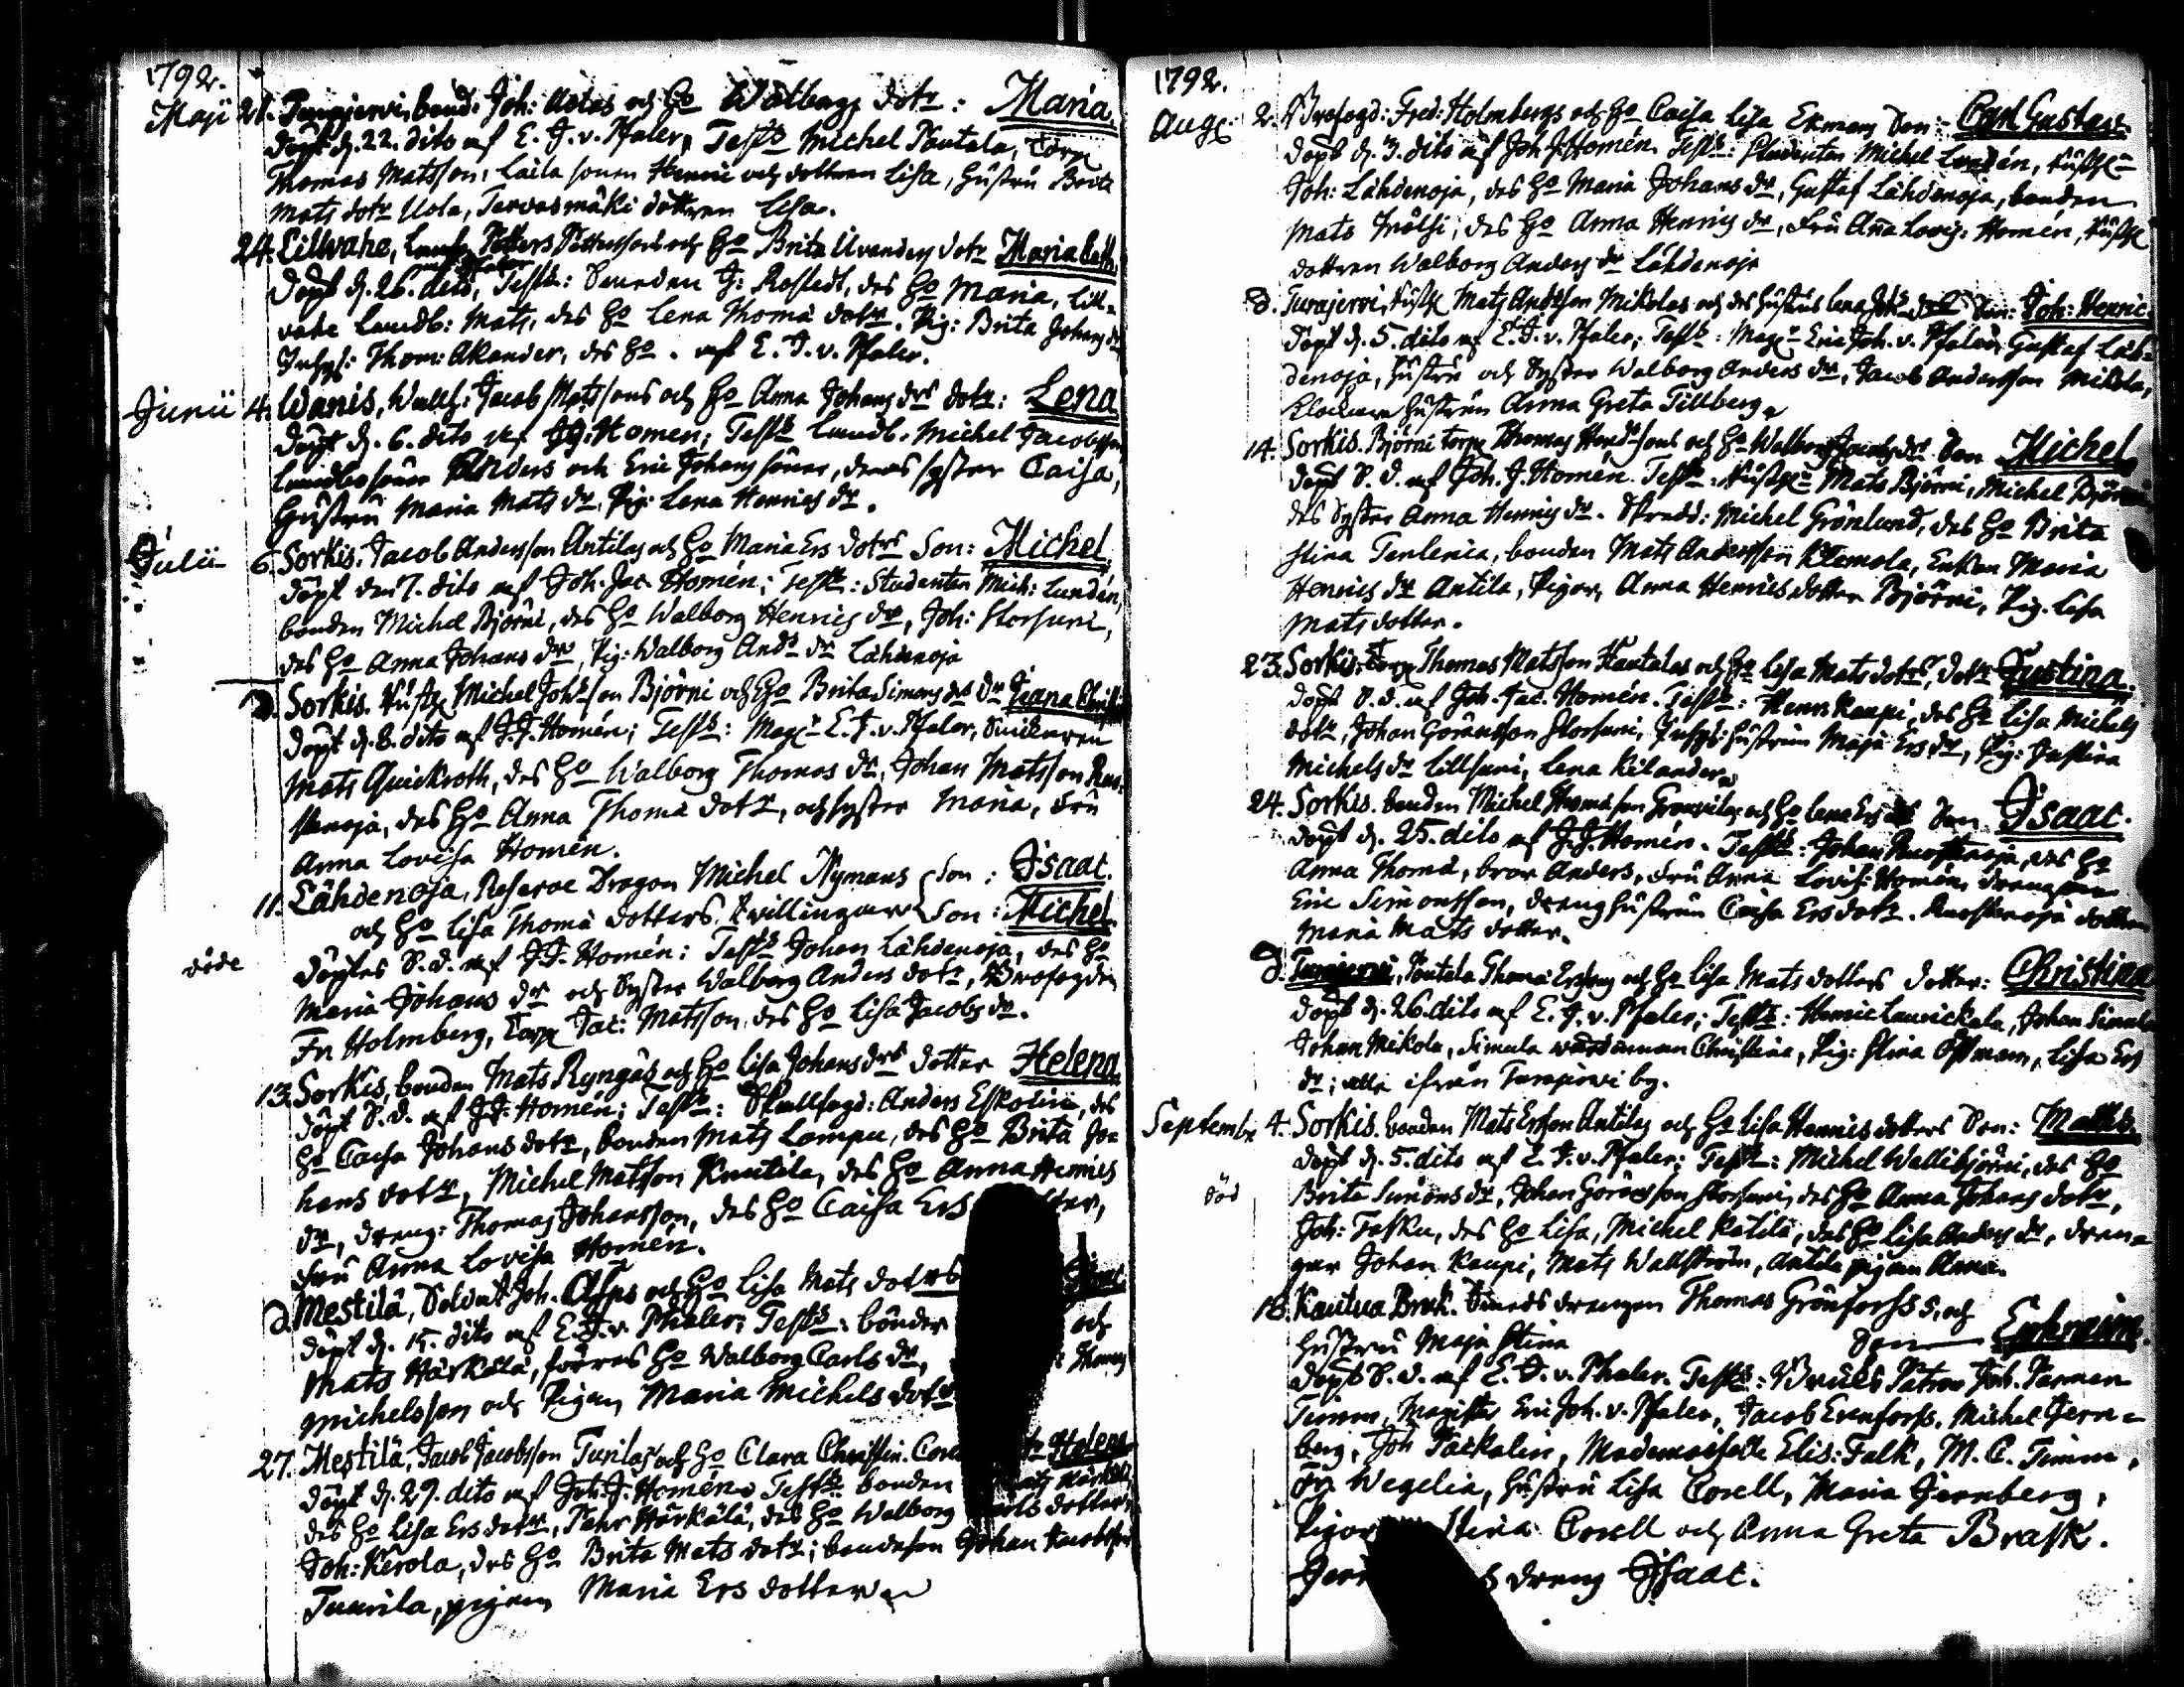 1792.
Maji 21. Turajervi, bond. Joh: Uolas och Ho Walborgs dotr: Maria
döpt d. 22. dito af E. J. v. Pfaler, Test: Michel Pautala, Torp
Thomas Matsson, Laila sonen Henric och dottren Lisa, Hustru Brita
Mats dotr Uola, Tarvasmäki dottren Lisa.
24. Lillvahe, Petters Pettersons och Ho Brita dotr Maria
döpt d. 26. dito, Test: G: Rostedt, des Ho Maria, Lill-
vahe Landb: Mats, des Ho Lena Thoma dotr. Pig: Brita Johans dr
Inhys: Thom: Akander, des Ho. af E. J. v. Pfaler.
Junii 4. Wanis, Jacob Matssons och Ho Anna Johans drs dotr: Lena
döpt d. 6. dito af J J: Homen; Test Landb. Michel Jacobsson
Landbo söner Anders och Eric Johans söner, deras syster Caisa,
Hustru Maria Mats dr, Pig: Lena Henrics dr.
Julii 6. Sorkis. Jacob Andersson Antilas och Ho Maria Ers dotrs Son: Michel
döpt den 7. dito af Joh: Jac Homén; Test: Studenten Mich: Lundén,
bonden Michel Björni, des Ho Walborg Henrics dr, Joh: Storsuni,
des Ho Anna Johans dr, Pig: Walborg Ands dr Lähdenoja
d. Sorkis. Rusth Michel Johsson Björni och Ho Brita Simons drs dr
döpt d. 8. dito af J. J. Homén; Test: Magr E. J. v. Pfaler, Smideren
Mats Quickroth, des Ho Walborg Thomas dr, Johan Matsson Ruo-
stenoja, des Ho Anna Thoma dotr, och syster Maria, Fru
Anna Lovisa Homén.
11. Lähdenoja, Reserve Dragon Michel Nymans Son: Isaac.
och Ho Lisa Thoma dotters tvillingar Son: Michel
döde döptes S. d. af J J. Homén; Test Johan Lähdenoja, des Ho
Maria Johans dr och Syster Walborg Anders dotr, Brofogden
Fr Holmberg, Torp Jac: Matsson, des Ho Lisa Jacobs dr.
13. Sorkis, bonden Mats Ryngäs och Ho Lisa Johans drs dotter Helena
döpt S. d. af J J. Homén; Test: Skallfogd: Anders Eskolin, des
Ho Caisa Johans dotr, bonden Mats Lampu, des Ho Brita Jo-
hans dotr, Michel Matsson Knutila, des Ho Anna Henrics
dr, dreng: Thomas Johansson, des Ho Caisa Ers
Fru Anna Lovisa Homén.
d. Mestilä, Soldat Joh. Asps och Ho Lisa Mats dotrs
döpt d. 15. dito af E. J. v. Phaler; Test: bönder och
Mats Härkälä, förres Ho Walborg Carls dr, Thomas
Michelsson och Pigan Maria Michels dotr
27. Mestilä, Jacob Jacobsson Tunilas och Ho Clara Christin. Helena
döpt d. 29. dito af Joh. J. Homén Test bonden
des Ho Lisa Ers dotr, Pehr Härkälä, des Ho Walborg dotter,
Joh: Kerola, des Ho Brita Mats dotr; bondeson Johan
Tuurila, pigan Maria Ers dotter
1792.
Aug 2. Brofogd: Fred: Holmbergs och Ho Caisa Lisa Ekmans Son: Carl Gustav.
döpt d. 3. dito af Joh J: Homén Test: Studenten Michel Lundén,
Joh: Lähdenoja, des Ho Maria Johans dr, Gustaf Lähdenoja, bonden
Mats des Ho Anna Henrics dr, Fru Anna Lovis: Homén, Rusth
dottren Walborg Anders dr Lähdenoja
3. Turajervi, Rusth Mats Andsson Mikolas och des Hustrus Lena Son: Joh: Henric.
döpt d. 5. dito af E. J. v. Pfaler; Test: Magr Eric Joh. v. Pfaler, Gustaf Läh-
denoja, Hustru och Syster Walborg Anders dr, Jacob Andersson Mikola,
Klockare Hustrun Anna Greta Tillberg
14. Sorkis. Björni torp Thomas Hendssons och Ho Walborg Son Michel
döpt S. d. af Joh. J. Homén. Test: Mats Björni, Michel
des Syster Anna Henrics dr. Skredd: Michel Grönlund, des Ho Brita
Stina Terlenia, bonden Mats Andersson Klemola, Enkan Maria
Henrics dr Antila, Pigor, Anna Henrics dotter Björni, Pig. Lisa
Mats dotter.
23. Sorkis. Torp Thomas Matsson Hautalas och Ho Lisa Mats dotrs, dotr Justina.
döpt S. d. af Joh. Jac. Homén. Test: Henr. Kaupi, des Ho Lisa Michels
dotr, Johan Göransson Storsuni, Inhys: hustrun Maja Ers dr, Pig: Justina
Michels dr Lillsuni, Lena Kilander
24. Sorkis. bonden Michel Thomasson och Ho Lena Ers Son Isaac.
döpt d. 25. dito af J. J. Homén. Test: Johan Ruostenoja, des Ho
Anna Thoma, bror Anders, Fru Anna Lovis: Homén, drengen
Eric Simonsson, dreng hustrun Caisa Ers dotr. Ruostenoja dotter
Maria Mats dotter.
d. Turajervi, Pautala Thoma och Ho Lisa Mats dotters dotter: Christina
döpt d. 26. dito af E. J. v. Pfaler; Test: Henric Laurickala, Johan Simula
Johan Mikola, Simula Christina, Pig: Stina Öfman, Lisa Ers
dr; alla ifrån Turajervi by.
Septembr 4. Sorkis. bonden Mats Ersson Antilas och Ho Lisa Henrics dotters Son: Matts.
döpt d. 5. dito af E. J. v. Pfaler; Test: Michel Wallibjörni, des Ho
död Brita Simons dr, Johan Göransson Storsuni, des Ho Anna Johans dotr,
Joh: Fasku, des Ho Lisa, Michel Katila, des Ho Lisa Anders dr, dren-
gar Johan Kaupi, Mats Wallström, Antila pigan Anna.
18. Kautua Bruk. Smeds drengen Thomas Grönforss, och
Hustru Maja Stina Son Ephraim.
döpt S. d. af E. J. v. Phaler. Test: Bruks Patron Joh. Parmen
Timm, Magister Eric Joh. v. Pfaler, Jacob Erenforss. Michel Jern-
berg, Joh Packalin, Mademoiselle Elis: Falk, M. C. Timm,
Fr Wegelia, Hustru Lisa Corell, Maria Jernberg,
Pigor Stina Corell och Anna Greta Brask.
dreng Isaac.